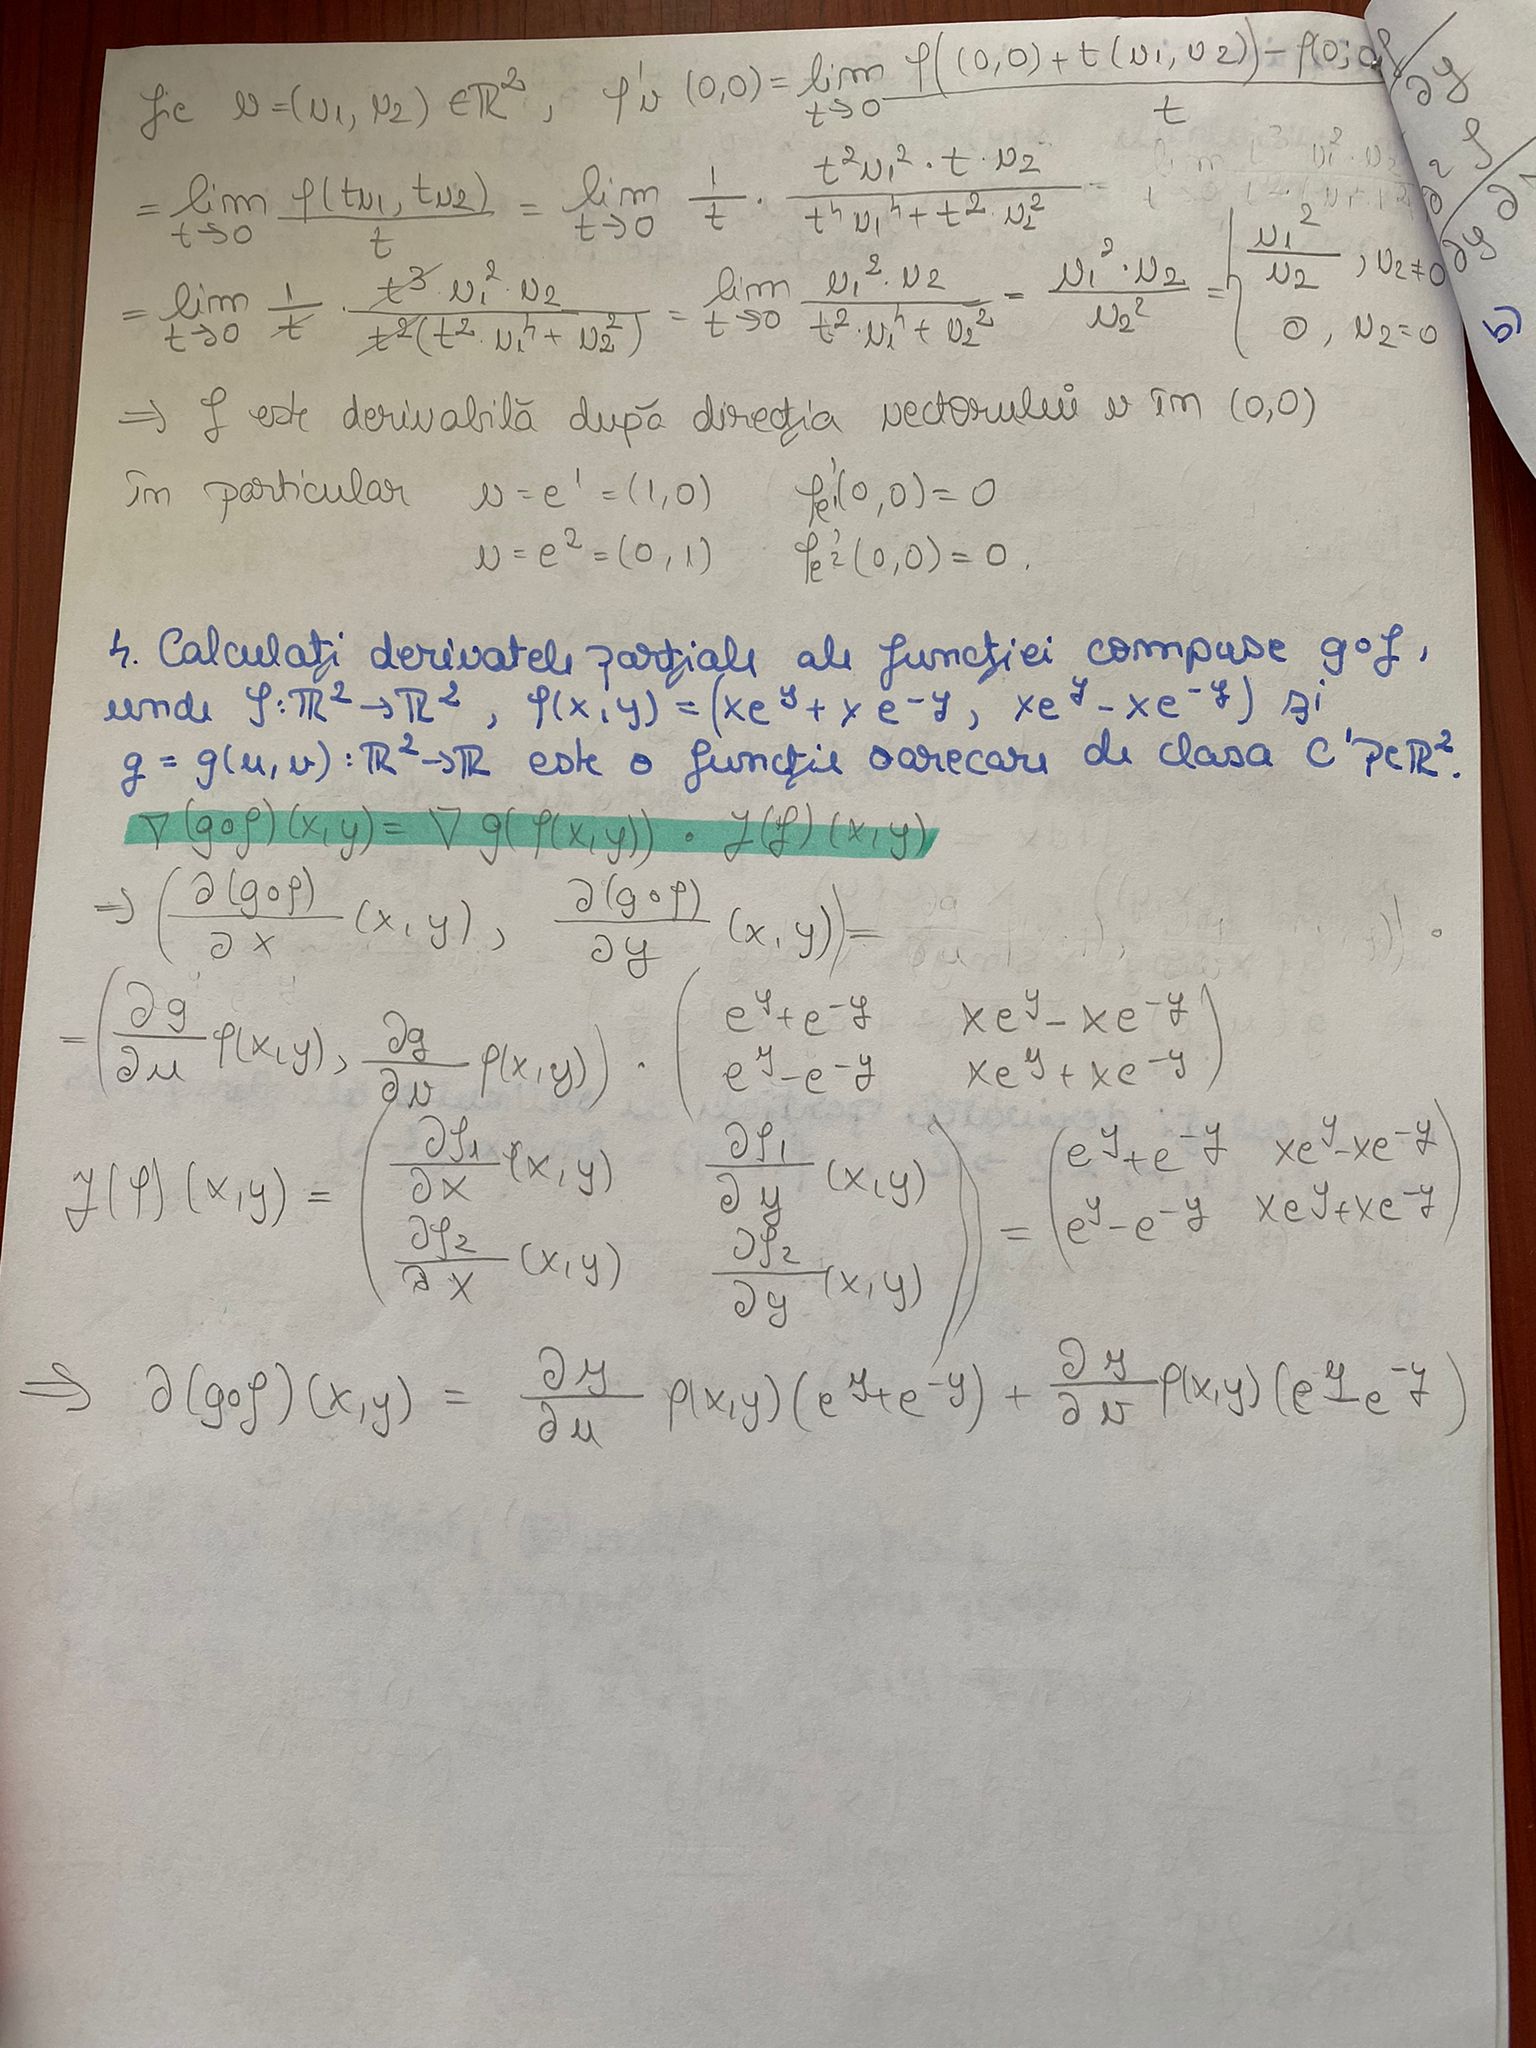 fie v=(v₁, v₂) ∈ℝ², f'v (0,0) = lim t→0 f((0,0)+t(v₁,v₂)) - f(0,0) / t
= lim t→0 f(tv₁, tv₂) / t = lim t→0 1/t · t²v₁²·t·v₂ / t⁴v₁⁴+t²·v₂² =
= lim t→0 1/t · t³·v₁²·v₂ / t²(t²·v₁⁴+v₂²) = lim t→0 v₁²·v₂ / t²·v₁⁴+v₂² = v₁²·v₂ / v₂² = { v₁²/v₂ , v₂≠0
0 , v₂=0
b)
⇒ f este derivabilă după direcția vectorului v în (0,0)
în particular v=e¹=(1,0) f'e¹(0,0)=0
v=e²=(0,1) f'e²(0,0)=0.
4. Calculați derivatele parțiale ale funcției compuse g∘f,
unde f:ℝ²→ℝ², f(x,y)=(xe^y+xe^-y, xe^y-xe^-y) și
g=g(u,v):ℝ²→ℝ este o funcție oarecare de clasa C¹ pe ℝ².
∇(g∘f)(x,y)=∇g(f(x,y))·J(f)(x,y)
⇒ (∂(g∘f)/∂x (x,y), ∂(g∘f)/∂y (x,y)) = ·
= (∂g/∂u f(x,y), ∂g/∂v f(x,y)) · ( e^y+e^-y xe^y-xe^-y
e^y-e^-y xe^y+xe^-y )
J(f)(x,y) = ( ∂f₁/∂x f(x,y) ∂f₁/∂y (x,y) = ( e^y+e^-y xe^y-xe^-y
∂f₂/∂x (x,y) ∂f₂/∂y (x,y) ) e^y-e^-y xe^y+xe^-y )
⇒ ∂(g∘f)(x,y) = ∂y/∂u f(x,y)(e^y+e^-y) + ∂y/∂v f(x,y)(e^y-e^-y)